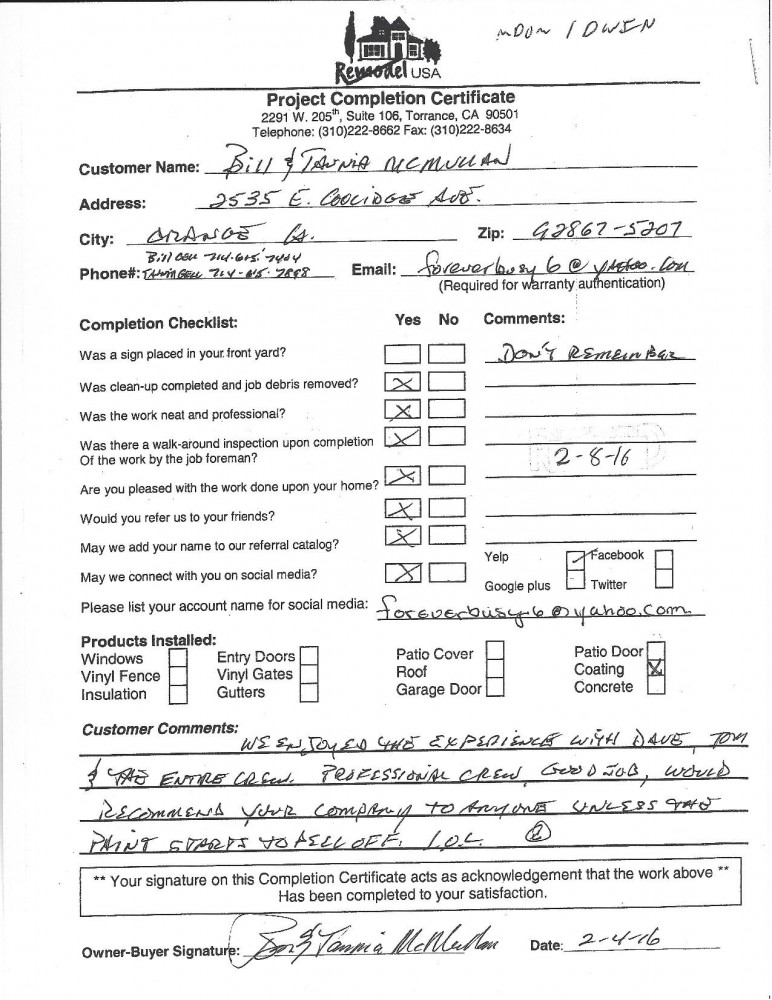 Remodel USA
Project Completion Certificate
2291 W. 205th, Suite 106, Torrance, CA 90501
Telephone: (310)222-8662 Fax: (310)222-8634
Customer Name: Bill & Tannia McMullan
Address: 2535 E. Coolidge Ave.
City: ORANGE CA. Zip: 92867-5207
Bill Cell 714-615-7404
Phone#: Tannia Cell 714-615-7898 Email: foreverbusy6@yahoo.com
(Required for warranty authentication)
Completion Checklist: Yes No Comments:
Was a sign placed in your front yard? DON'T REMEMBER
Was clean-up completed and job debris removed? X
Was the work neat and professional? X
Was there a walk-around inspection upon completion X
Of the work by the job foreman? 2-8-16
Are you pleased with the work done upon your home? X
Would you refer us to your friends? X
May we add your name to our referral catalog? X
Yelp Facebook
May we connect with you on social media? X
Google plus Twitter
Please list your account name for social media: foreverbusy6@yahoo.com
Products Installed:
Windows Entry Doors Patio Cover Patio Door
Vinyl Fence Vinyl Gates Roof Coating X
Insulation Gutters Garage Door Concrete
Customer Comments:
WE ENJOYED THE EXPERIENCE WITH DAVE, TOM
& THE ENTIRE CREW. PROFESSIONAL CREW, GOOD JOB, WOULD
RECOMMEND YOUR COMPANY TO ANYONE UNLESS THE
PAINT STARTS TO PELL OFF. LOL.
** Your signature on this Completion Certificate acts as acknowledgement that the work above **
Has been completed to your satisfaction.
Owner-Buyer Signature: Tannia McMullan Date: 2-4-16